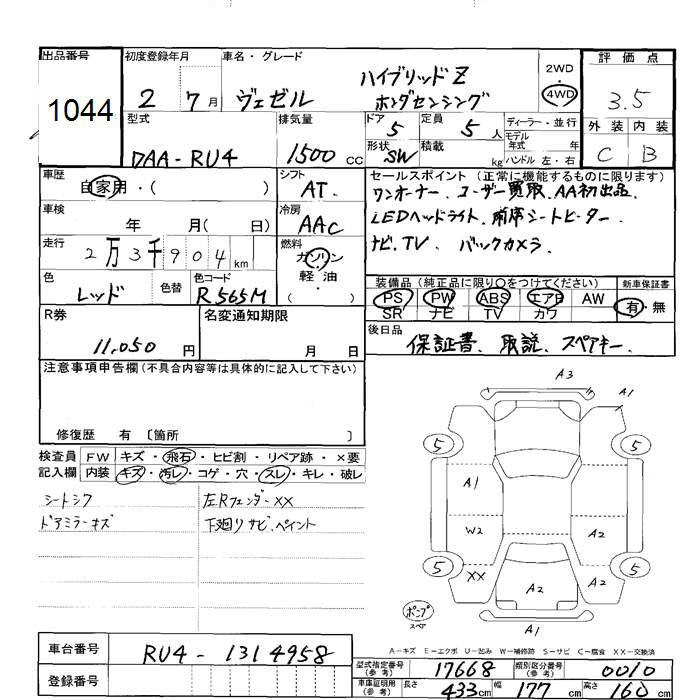 出品番号 初度登録年月 車名・グレード 評価点
1044 2 7月 ヴェゼル ハイブリッドZ ホンダセンシング 2WD 4WD 3.5
型式 排気量 ドア 定員 ディーラー・並行 外装 内装
DAA-RU4 1500cc 5 5人 モデル年式 年 C B
形状 SW 積載 kg ハンドル 左・右
車歴 シフト セールスポイント (正常に機能するものに限ります)
自家用・( ) AT. ワンオーナー. ユーザー買取. AA初出品.
車検 冷房 LEDヘッドライト. 前席シートヒーター.
年 月( 日) AAC ナビ.TV. バックカメラ.
走行 燃料
2万3千904km ガソリン
軽・油
( )
色 色替 色コード 装備品(純正品に限り〇をつけてください) 新車保証書
レッド R565M PS PW ABS エアB AW 有・無
SR ナビ TV カワ
R券 名変通知期限 後日品
11,050円 月 日 保証書. 取説. スペアキー.
注意事項申告欄(不具合内容等は具体的に記入して下さい)
修復歴 有 〔箇所 〕
検査員 FW キズ・飛石・ヒビ割・リペア跡・×要
記入欄 内装 キズ・汚レ・コゲ・穴・スレ・キレ・破レ
シートシワ 左Rフェンダーxx
ドアミラーキズ 下廻りサビ.ペイント
A3
A1
5 5
A1
W2 A2
5 XX A2 A2 5
ポンプ
スペア
A1
A-キズ E-エクボ U-凹み W-補修跡 S-サビ C-腐食 XX-交換済
車台番号 RU4-1314958 型式指定番号(参考) 17668 類別区分番号(参考) 0010
登録番号 車庫証明用(参考) 長さ 433cm 幅 177cm 高さ 160cm